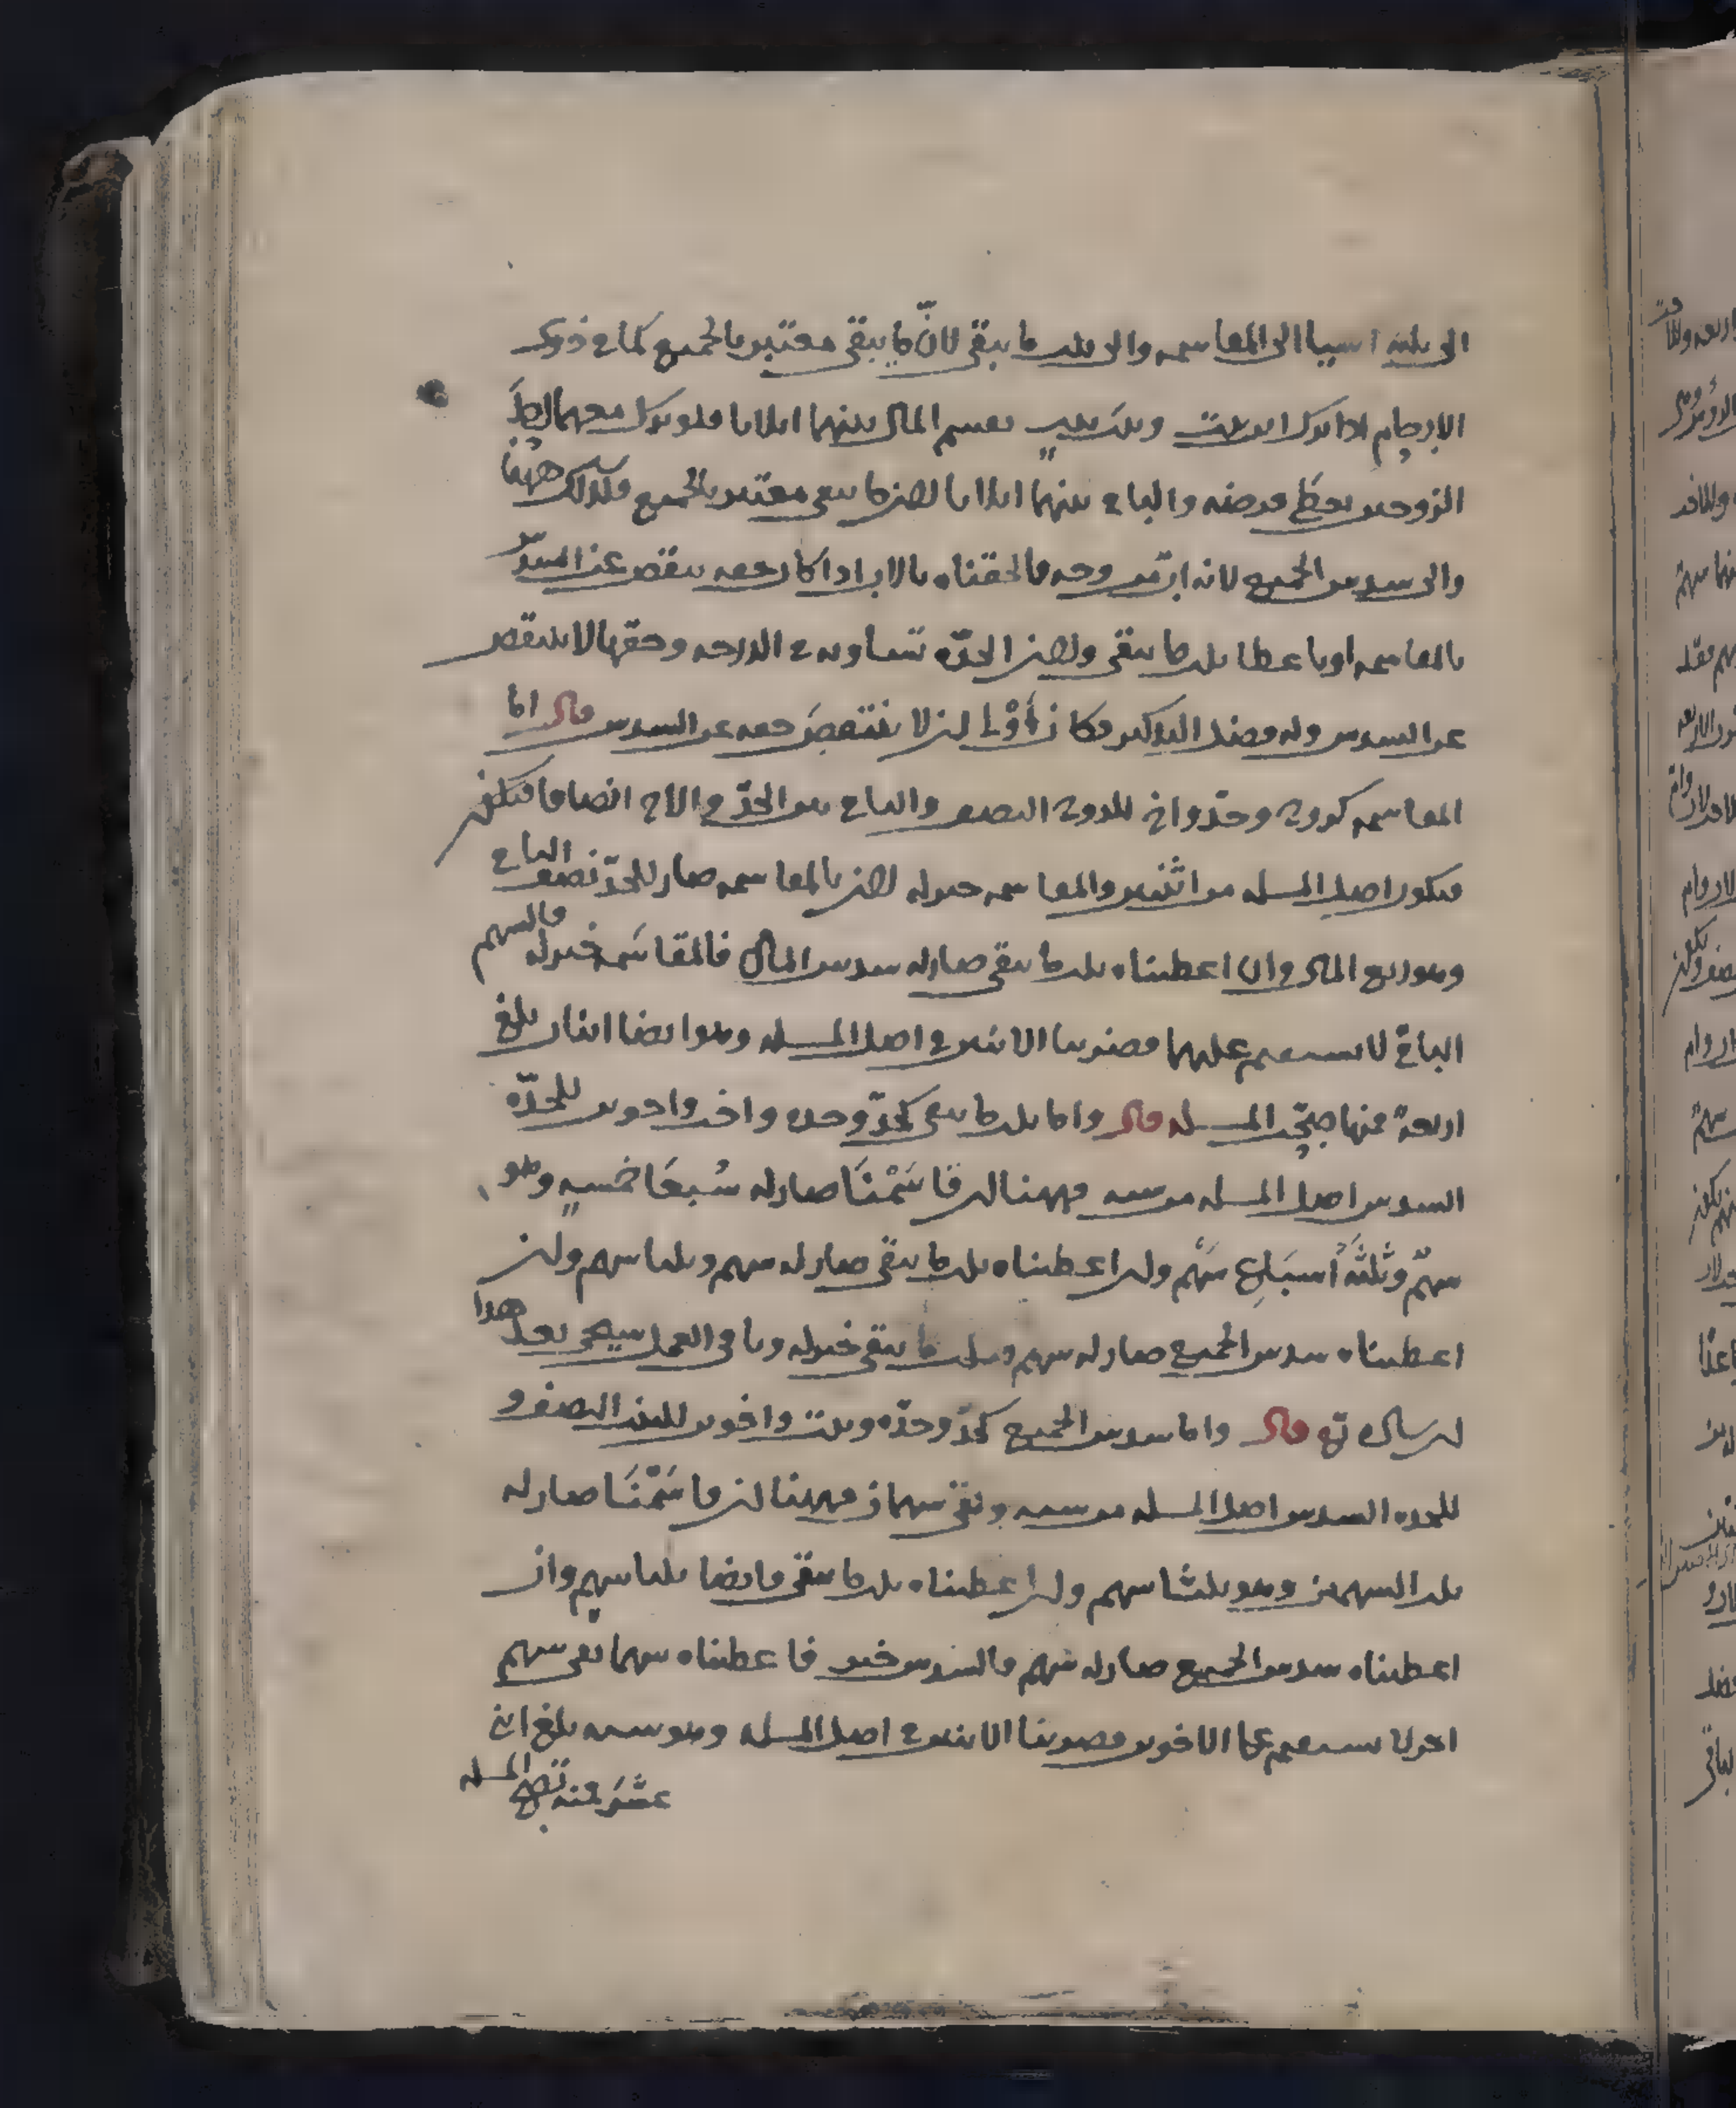 الى ثلثة اشيا الى المقاسمه والى ثلث ما يبقى لانّ ما يبقى معتبر بالجميع كما في ذوى
الارحام اذا ترك ابن بنت وبنت بنت يقسم المال بينهما اثلاثا فلو ترك معهما احد
الزوجين يعطى فرضه والباقي بينهما اثلاثا لان ما يبقى معتبر بالجميع فكذلك ههنا
والى سدس الجميع لانه اب من وجه فالحقناه بالاب اذا كان حقه ينقص عن السدس
بالمقاسمه او باعطا ثلث ما يبقى ولان الجدّه تساويه في الدرجه وحقها لا ينتقص
عن السدس وله فضل التذكير فكان أَوْلى ان لا ينتقصَ حقه عن السدس قال اما
المقاسمه كزوج وجدّ واخ للزوج النصف والباقي بين الجدّ والاخ انصافا
فيكون اصل المسله من اثنين والمقاسمه خير له لان بالمقاسمه صار للجدّ نصف الباقي
وهو ربع المال وان اعطيناه ثلث ما يبقى صار له سدس المال فالمقاسَمه خير له فالسهم
الباقي لا يستقيم عليهما فضربنا الاثنين في اصل المسله وهو ايضا اثنان بلغ
اربعة منها صحّت المسله قال واما ثلث ما يبقى كجدّ وجده واخ واخوين للجدّه
السدس اصل المسله من سته فههنا ان قاسَمْنَا صار له سُبعَا خمسهٍ وهو
سهمٌ وثلثَهُ أسبَاعِ سَهْم وان اعطيناه ثلث ما يبقى صار له سهم وثلثا سهم وان
اعطيناه سدس الجميع صار له سهم فثلث ما يبقى خير له وباقي العمل سيجى بعد هذا
ان شا الله تع قال واما سدس الجميع كجدّ وجدّه وبنت واخوين للبنت النصف و
للجده السدس اصل المسله من سته وبقى سهمان فههنا ان قاسَمْنَا صار له
ثلث السهمين وهو ثلثا سهم وان اعطيناه ثلث ما يبقى فايضا ثلثا سهم وان
اعطيناه سدس الجميع صار له سهم فالسدس خير فاعطيناه سهما بقى سهم
اخر لا يستقيم على الاخوين فضربنا الاثنين في اصل المسله وهو سته بلغ اثنى
عشَر فمنه تصح المسله